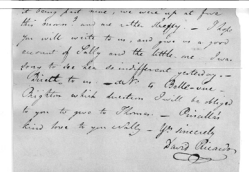 it being past nine, we were up at five
this morn.g and are rather sleepy. — I hope
you will write to us, and give us a good
account of Sally and the little one I was
sorry to see her so indifferent yesterday. —
Direct to me — at N Belle-vue —
Brighton which direction I will be obliged
to you to give to Thomas. — Priscilla's
kind love to you & Sally — Yrs sincerely
David Ricardo